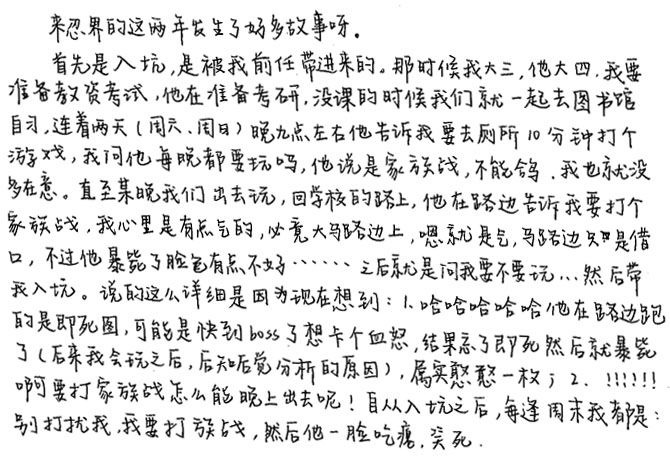 来忍界的这两年发生了好多故事呀。
首先是入坑,是被我前任带进来的。那时候我大三,他大四,我要
准备教资考试,他在准备考研,没课的时候我们就一起去图书馆
自习,连着两天(周六、周日)晚九点左右他告诉我要去厕所10分钟打个
游戏,我问他每晚都要玩吗,他说是家族战,不能鸽,我也就没
多在意。直至某晚我们出去玩,回学校的路上,他在路边告诉我要打个
家族战,我心里是有点气的,必竟大马路边上,嗯就是气,马路边只是借
口,不过他暴毙了脸色有点不好……之后就是问我要不要玩…然后带
我入坑。说的这么详细是因为现在想到:1.哈哈哈哈哈他在路边跑
的是即死图,可能是快到boss了想卡个血怒,结果忘了即死然后就暴毙
了(后来我会玩之后,后知后觉分析的原因),属实憨憨一枚;2.!!!!!!
啊可要打家族战怎么能晚上出去呢!自从入坑之后,每逢周末我都是:
别打扰我,我要打族战,然后他一脸吃瘪,笑死.